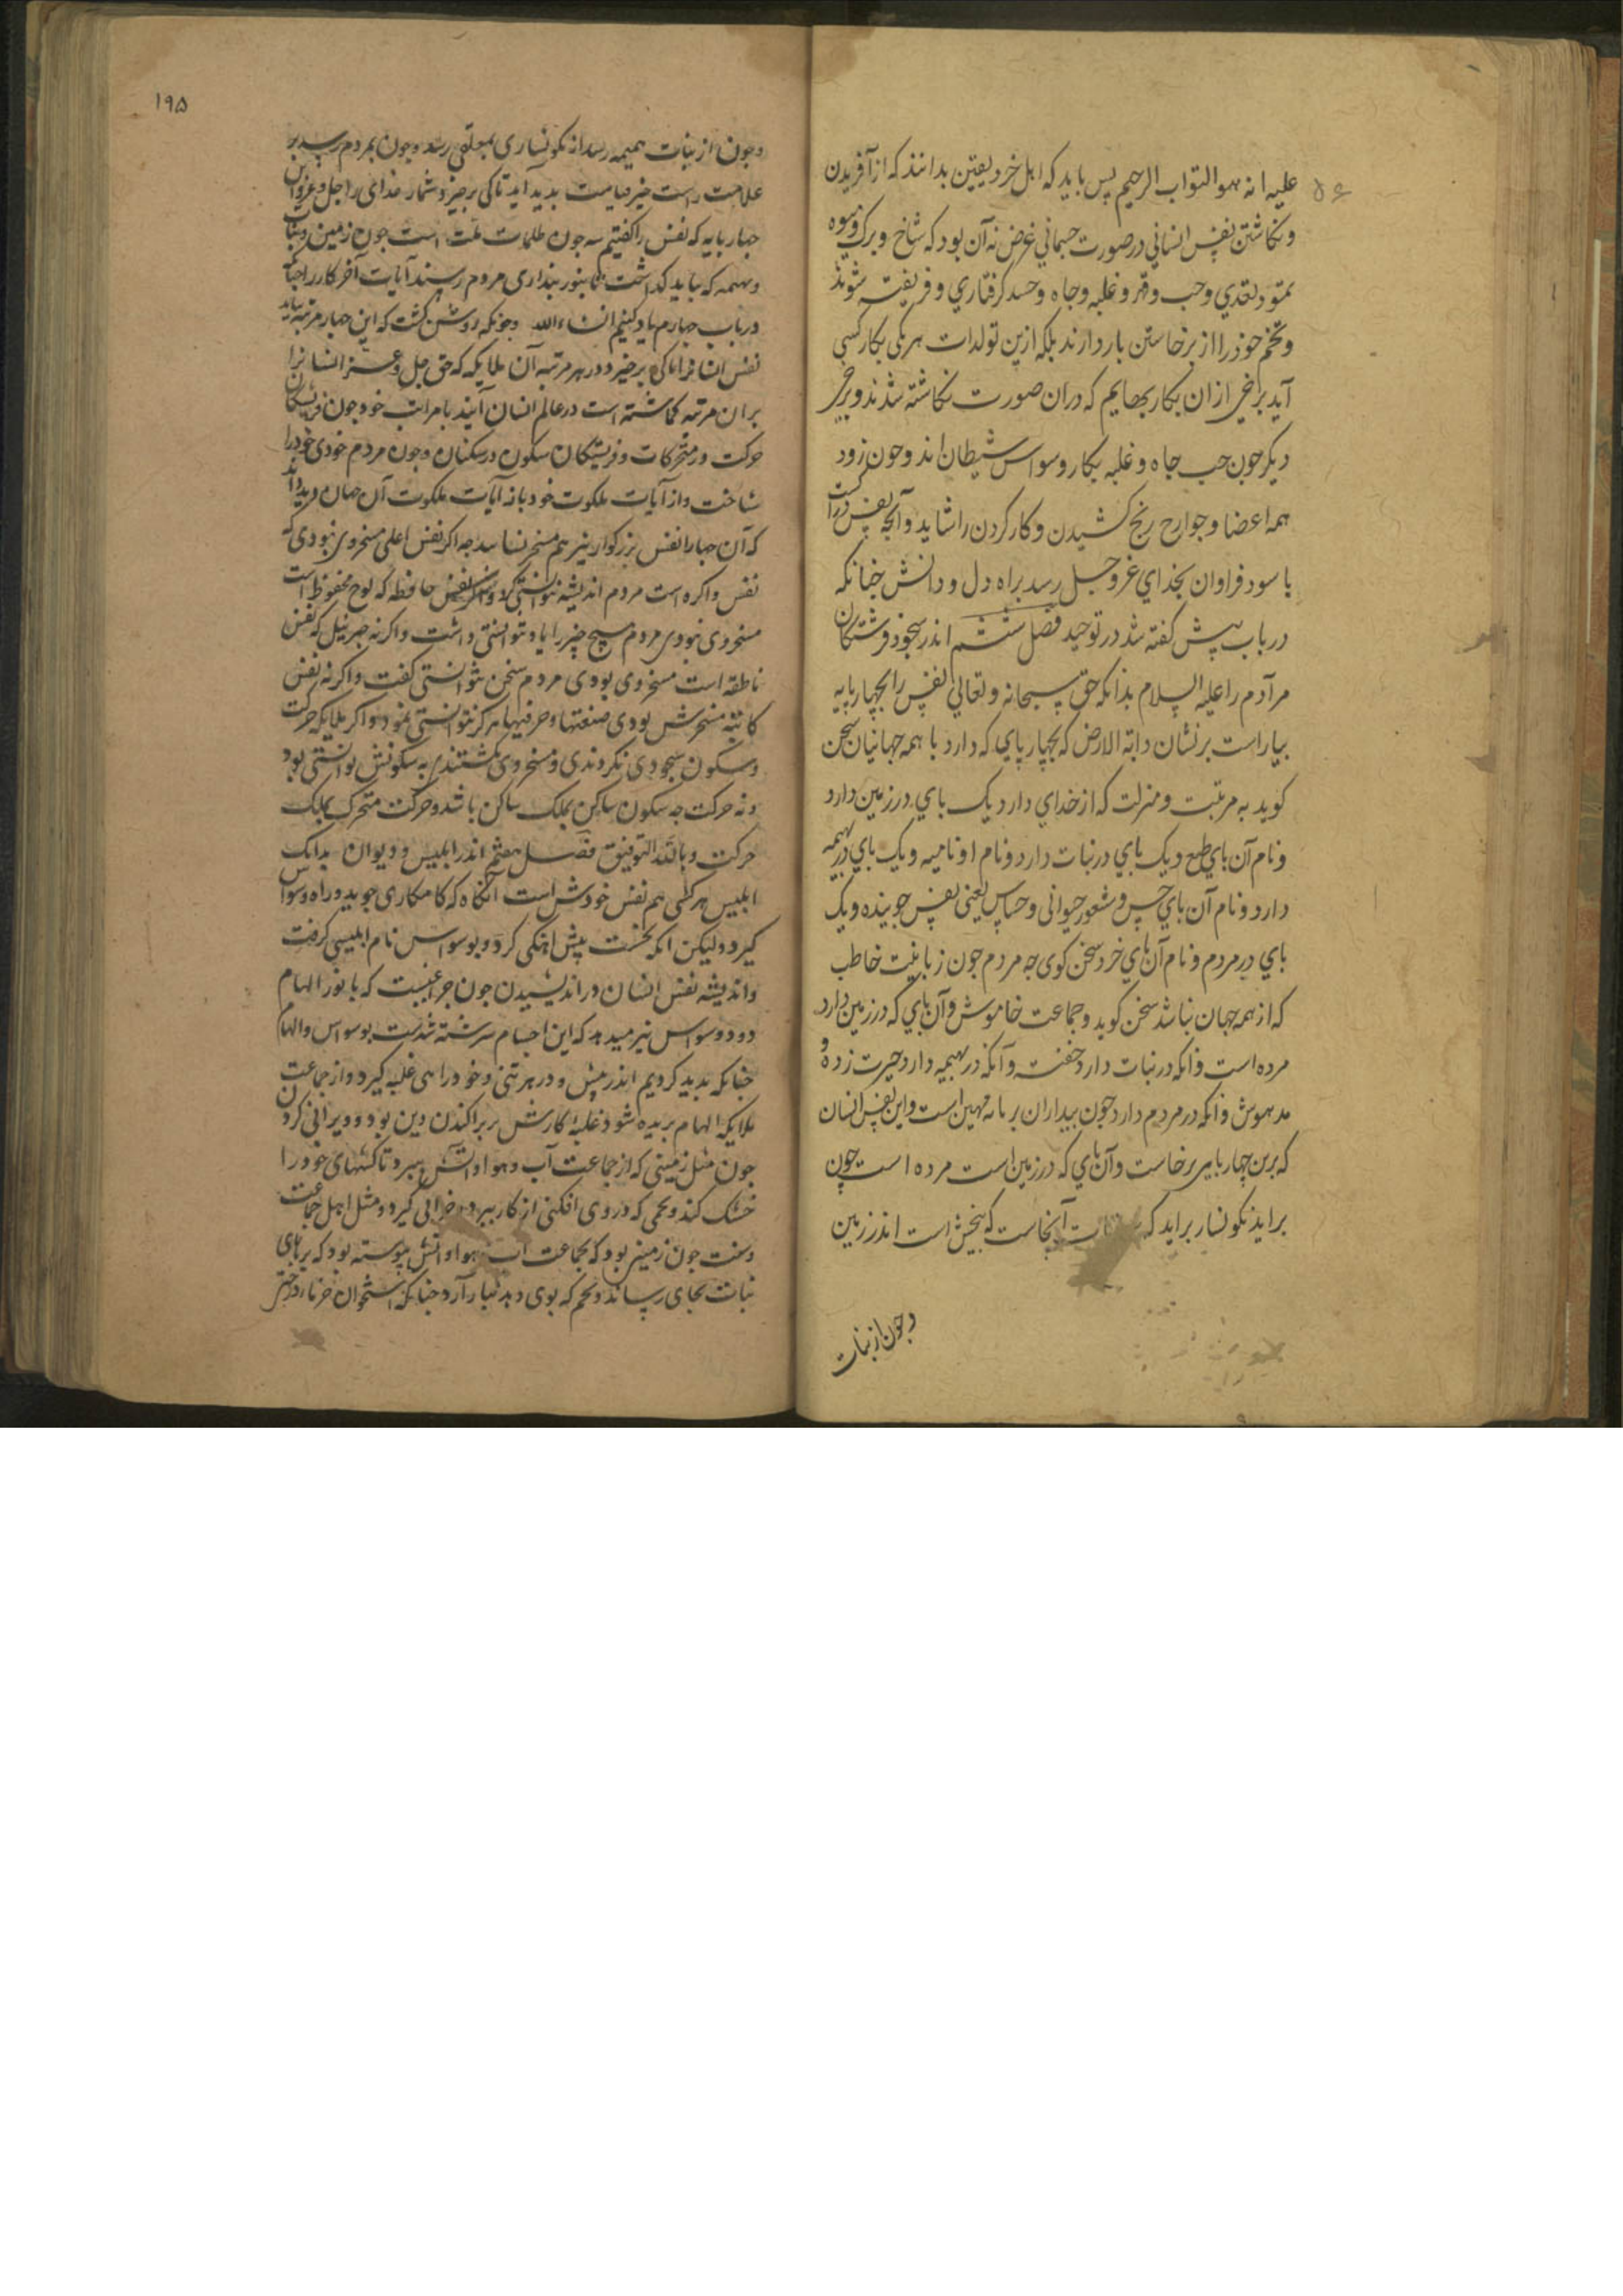 علیه انه هو التواب الرحیم پس باید که اهل خرد و یقین بدانند که از آفریدن
و نکاشتن نفس انسانی در صورت جسمانی غرض نه آن بود که شاخ و برک و میوه
نمو و تعدی و حب و قهر و غلبه و جاه و حسد کرفتاری و فریفته شوند
و تخم خود را از بر خاستن باز دارند بلکه ازین تولدات هر یکی بکار کسی
آید برخی ازان بکار بهایم که دران صورت نکاشته شدند و برخی
دیکر چون حب جاه و غلبه بکار وسواس شیطان اند و چون زود
همه اعضا و جوارح رنج کشیدن و کار کردن را شاید و آنچه نفس راست
با سود فراوان بخدای عز و جل رسد براه دل و دانش چنانکه
در باب پیش کفته شد در توحید فصل ششم اندر سجود فرشتکان
مر آدم را علیه السلام بدانکه حق سبحانه و تعالی نفس را بچهار پایه
بیاراست بر نشان دابة الارض که بچهار پای که دارد با همه جهانیان سخن
کوید به مرتبت و منزلت که از خدای دارد یک پای در زمین دارد
و نام آن پای طبع و یک پای در نبات دارد و نام او نامیه و یک پای در بهیمه
دارد و نام آن پای حس و شعور حیوانی و حساس یعنی نفس جوینده و یک
پای در مردم و نام آن پای خرد سخن کوی چه مردم چون زبانیست خاطب
که از همه جهان بباشد سخن کوید و جماعت خاموش و آن پای که در زمین دارد
مرده است و انکه در نبات دارد خفته و آنکه در بهیمه دارد حیرت زده و
مدهوش و انکه در مردم دارد چون بیداران مهین است و این نفس انسان
که برین چهار پایه برخاست و آن پای که در زمین است مرده است چون
براید نکونسار براید که آنجاست که بیخش است اندر زمین
و چون از نبات
۱۹۵
و چون از نبات ببهیمه رسد از نکونساری بمعلقی رسد و چون بمردم رسد بر
علامت راست خیز قیامت پدید اید تا کی برخیزد شمار خدای را جل و عز و این
چهار پایه که نفس را کفتیم سه چون ظلمات ثلث است چون زمین و نبات
و بهیمه که بباید کذاشت تا بنور بیداری مردم رسند آیات آخر کار را چنانکه
در باب چهارم یاد کنیم انشاءالله و چونکه روشن کشت که این چهار مرتبه باید
نفس انسانرا تا کی برخیزد و در هر مرتبه آن ملایکه که حق جل و عز انسانرا
بران مرتبه کماشته است در عالم انسان آیند با مراتب خود چون فریشتکان
حرکت در متحرکات و فریشتکان سکون در سکنان و چون مردم خودی خود را
شناخت و از آیات ملکوت خود باز آیات ملکوت آن جهان دید داند
که آن چهار نفس بزرکوار نیز هم مسخر نشاسد چه اکر نفس اعلی مسخر وی نبودی که
نفس ذاکره است مردم اندیشه نتوانستی کرد و اکر نفس حافظه که لوح محفوظ است
مسخر وی نبودی مردم هیچ چیز را یاد نتوانستی داشت و اکر نه جبرئیل که نفس
ناطقه است مسخر وی بودی مردم سخن نتوانستی کفت و اکر نه نفس
کاتبه مسخرش بودی صنعتها و حرفتها هرکز نتوانستی نمود و اکر ملایکه حرکت
و سکون سجودی نکردندی و مسخر وی نکشتندی نه سکونش توانستی بود
و نه حرکت چه سکون ساکن بملک ساکن باشد و حرکت متحرک بملک
حرکت و بالله التوفیق فصل هفتم اندر ابلیس و دیوان بدانک
ابلیس هر کسی هم نفس خودش است آنکاه که کامکاری جوید و راه وسواس
کیرد ولیکن انکه نخست پیش اهنکی کرد و بوسواس نام ابلیسی کرفت
و اندیشه نفس انسان در اندیشیدن چون چراغیست که با نور الهام
دود وسواس نیز میدهد که این اجسام سرشته شدست بوسواس و الهام
چنانکه پدید کردیم اندر پیش و در هر تنی و خو در اسی غلبه کیرد و از جماعت
ملایکه الهام بریده شود و غلبه کارش بر پراکندن دین بود و ویرانی کردن
چون مثل زمینی که از جماعت آب و هوا و آتش ببرد تا کشتهای خود را
خشک کند و تخمی که در وی افکنی از کار ببرد و خرابی کیرد و مثل اهل جماعت
و سنت چون زمینی بود که بجماعت آب و هوا و آتش پیوسته بود که برپای
نبات بجای رساند و تخم که بوی دهد ببار آرد چنانکه استخوان خرما درختی